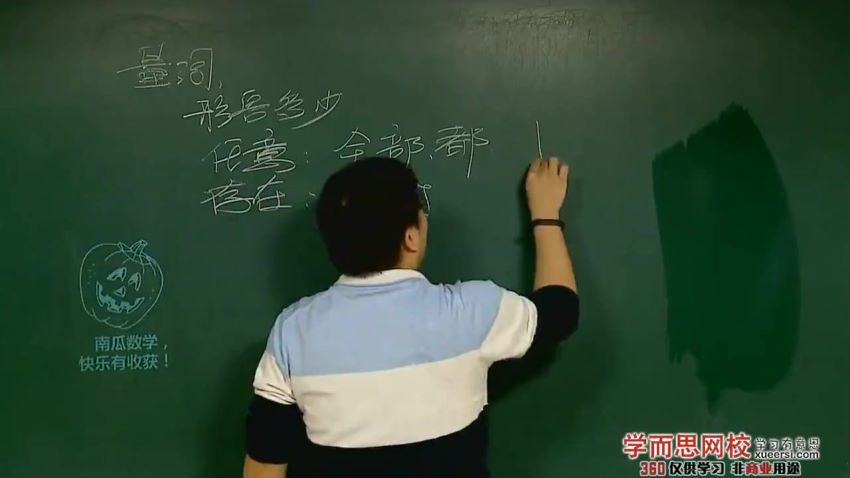 量词,
形容多少
任意：全部、都
存在：
南瓜数学，
快乐有收获！
学而思网校 学习有意思
xueersi.com
360 仅供学习 非商业用途